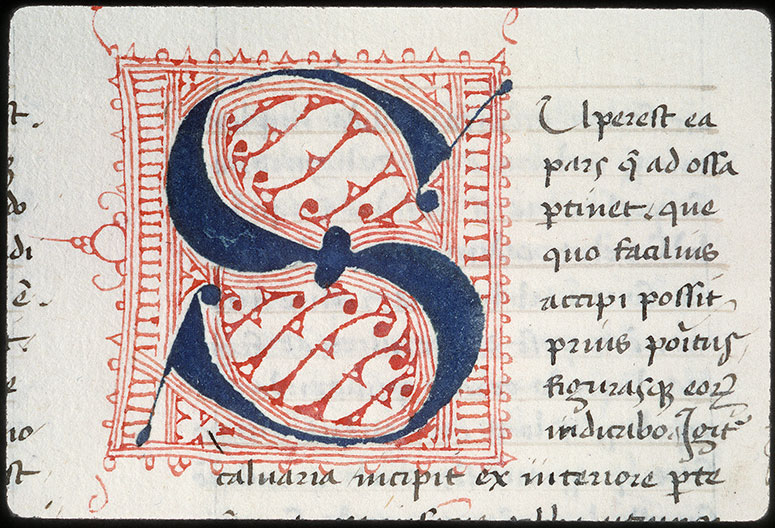 S Uperest ea
pars q̄ ad ossa
ꝑtinet. que
quo facilius
accipi possit,
prius po͛itus
figurasqꝫ eoꝝ
indicabo. Igit᷑
caluaria incipit ex interiore ꝑte